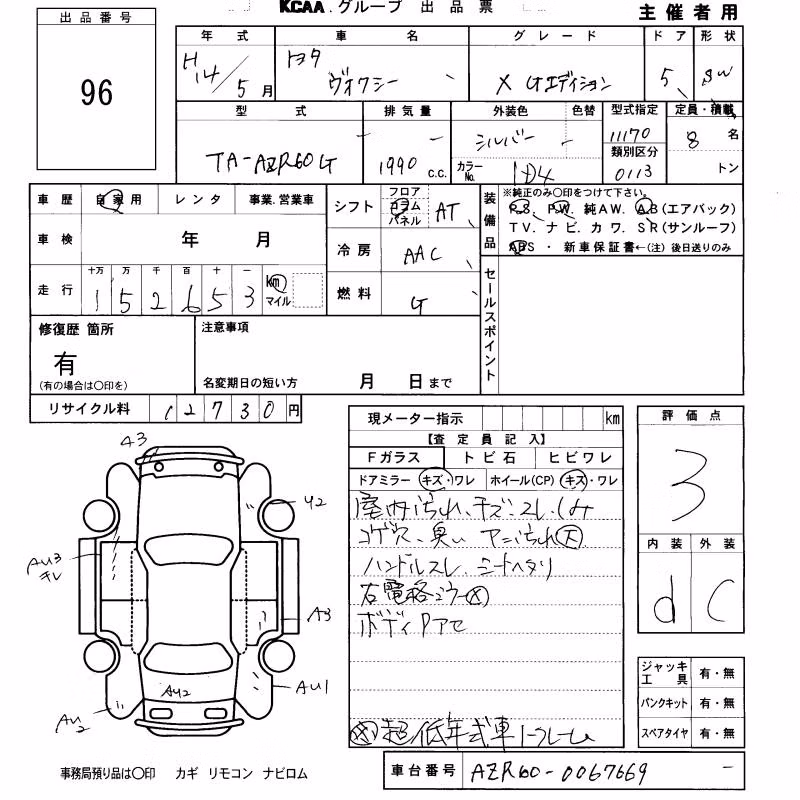 KCAA.グループ 出品票
主催者用
出品番号
96
年式 車名 グレード ドア 形状
H14/5月 トヨタ ヴォクシー X Gエディション 5 SW
型式 排気量 外装色 色替 型式指定 定員・積載
TA-AZR60G 1990 c.c. シルバー 11170 8名
カラーNo. 1D4 類別区分 0113 トン
車歴 自家用 レンタ 事業.営業車
車検 年 月
走行 十万 万 千 百 十 一
1 5 2 6 5 3 km マイル
シフト フロア コラム パネル AT
冷房 AAC
燃料 G
装備品
※純正のみ〇印をつけて下さい。
P.S. P.W. 純A.W. A.B(エアバック)
T.V. ナビ. カワ. S.R(サンルーフ)
ABS ・ 新車保証書←(注)後日送りのみ
セールスポイント
修復歴 箇所
有
(有の場合は〇印を)
注意事項
名変期日の短い方 月 日まで
リサイクル料 12730円
現メーター指示 km
【査定員記入】
Fガラス トビ石 ヒビワレ
ドアミラー キズ・ワレ ホイール(CP) キズ・ワレ
室内汚れ、キズ、スレ、しみ
コゲ穴、臭い ヤニ汚れ大
ハンドルスレ、シートヘタリ
右電格ミラー×
ボディPアセ
超低年式車コーフレーム
評価点
3
内装 外装
d C
ジャッキ工具 有・無
パンクキット 有・無
スペアタイヤ 有・無
A3
U2
AU3
キレ
A3
AU2
AU1
AU2
事務局預り品は〇印 カギ リモコン ナビロム
車台番号 AZR60-0067669 -